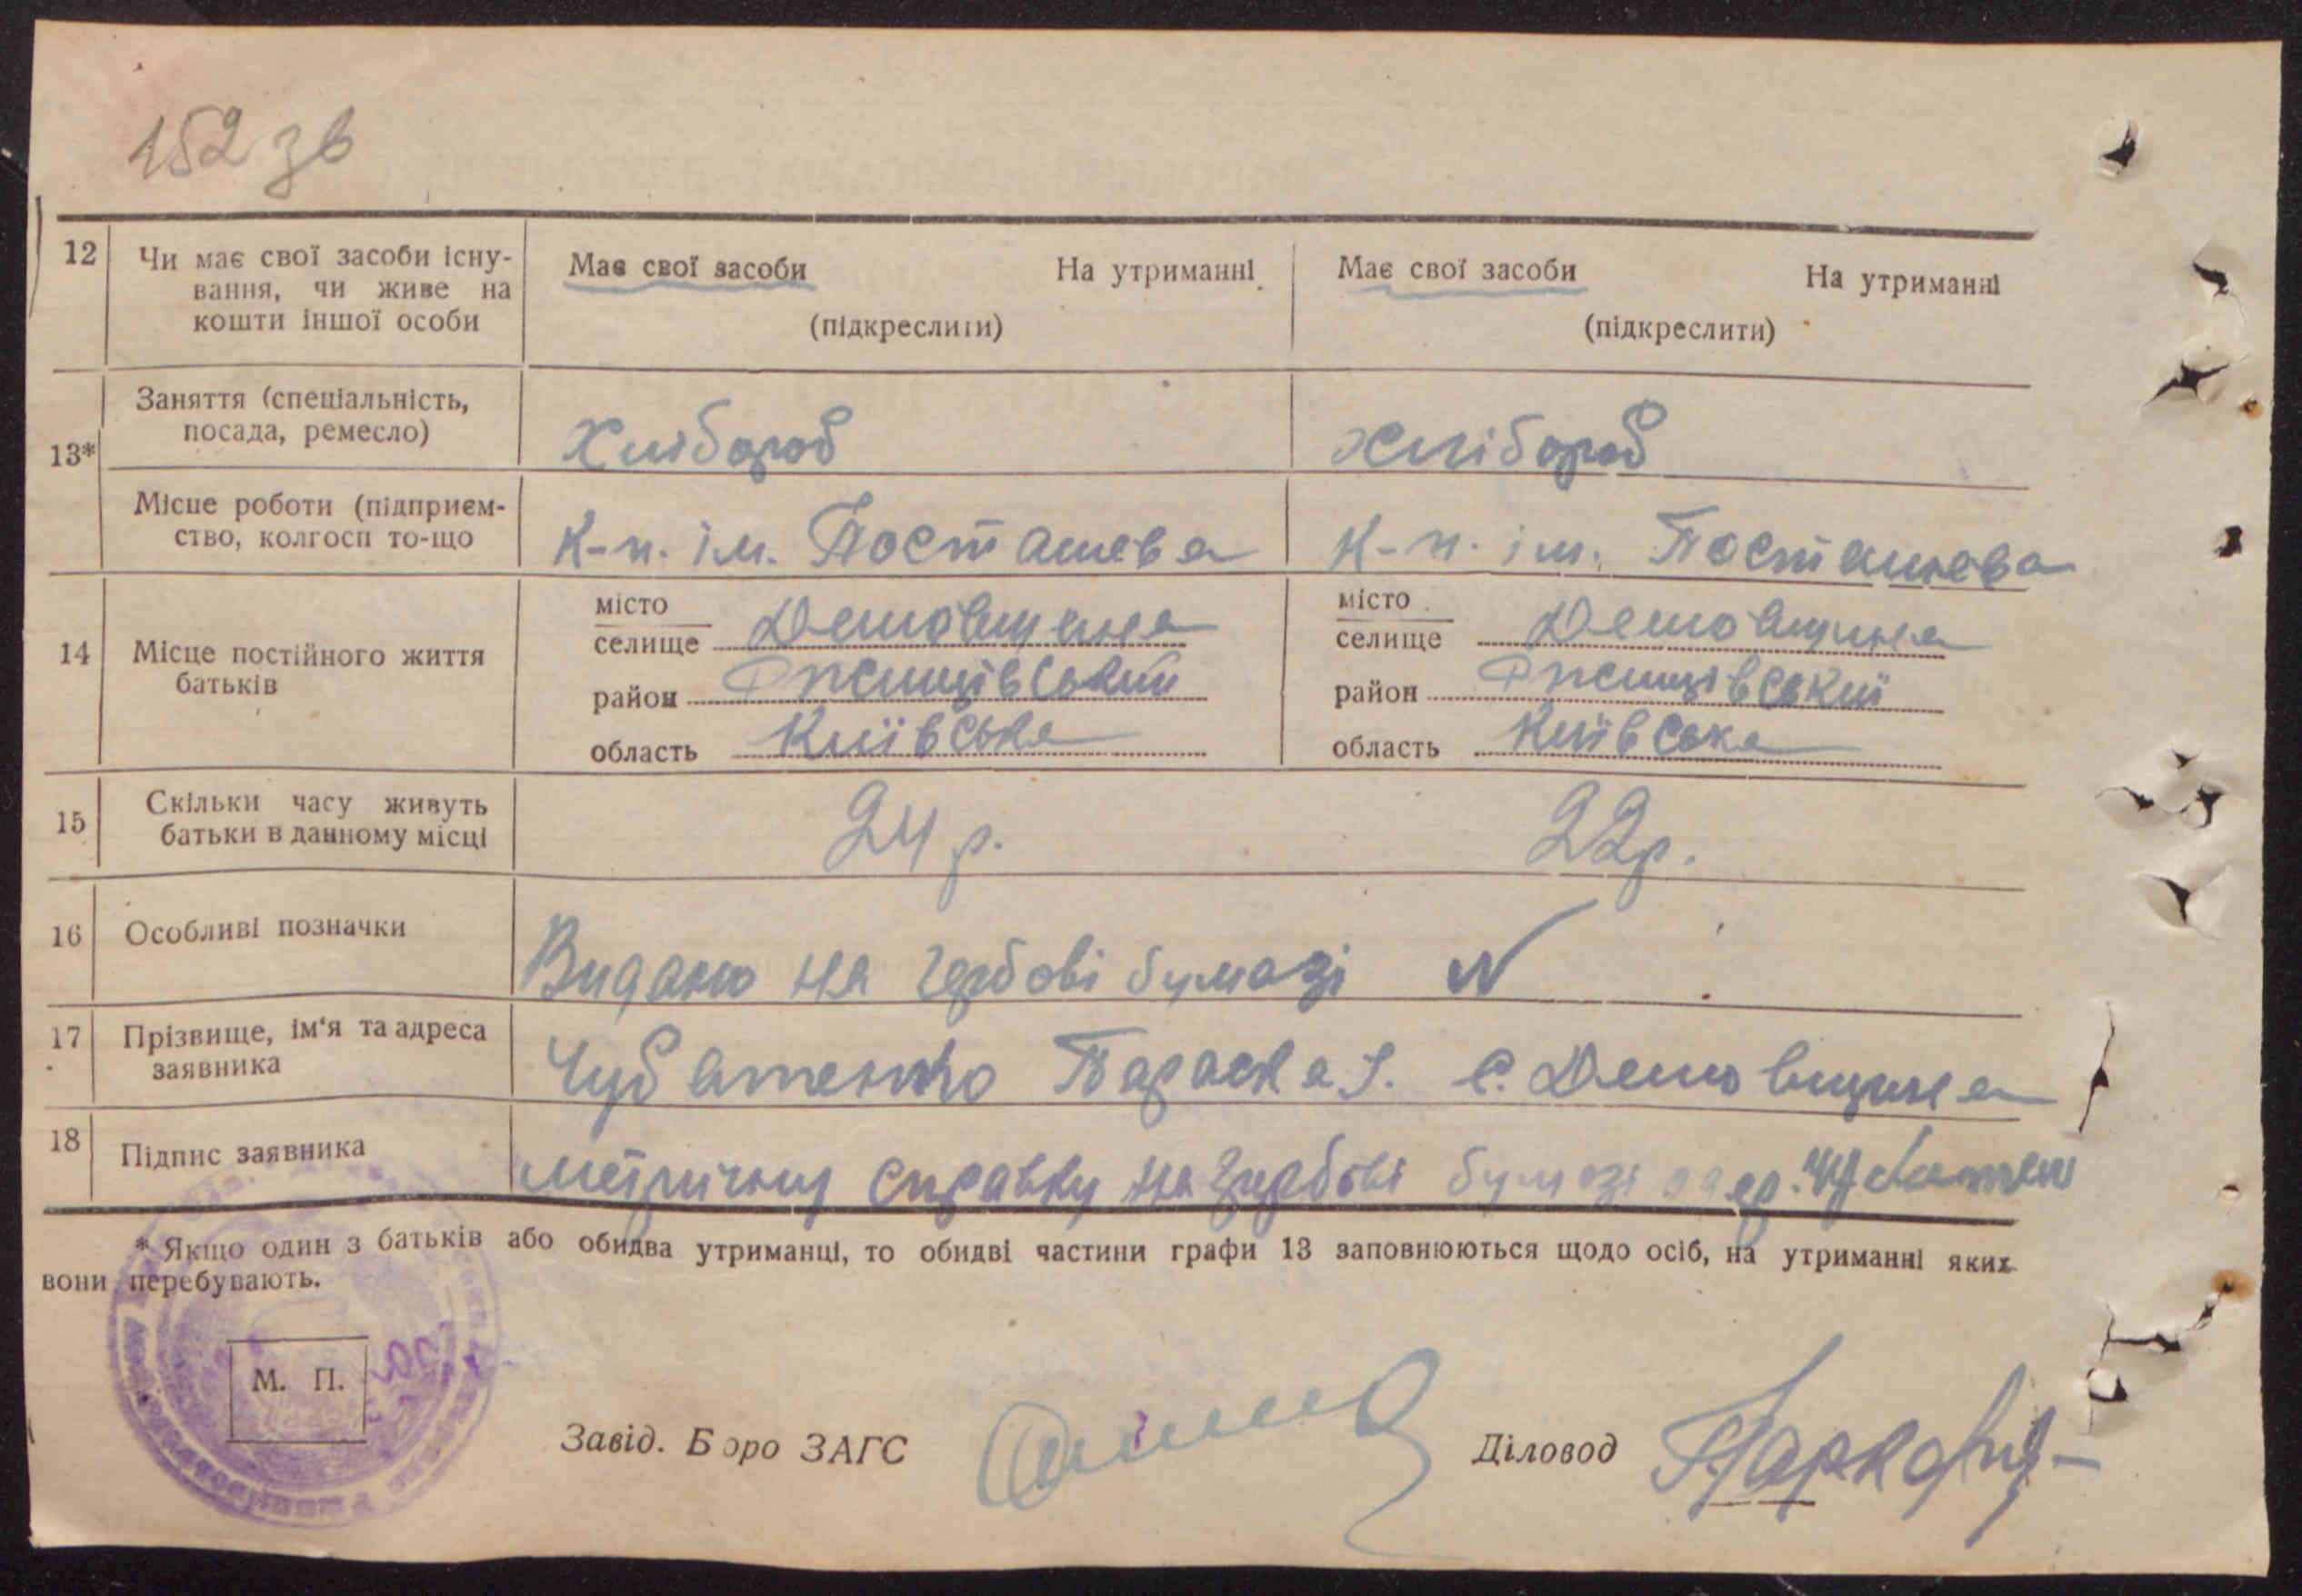 152 зв
12 Чи має свої засоби існу- Має свої засоби На утриманні Має свої засоби На утриманні
вання, чи живе на
кошти іншої особи (підкреслити) (підкреслити)
Заняття (спеціальність,
посада, ремесло) Хлібороб хлібороб
13*
Місце роботи (підприєм-
ство, колгосп то-що К-п. ім. Посташева К-п. ім. Посташева
місто місто
селище Демовщина селище Демовщина
14 Місце постійного життя
батьків
район Ржищівський район Ржищівський
область Київська область Київська
15 Скільки часу живуть
батьки в данному місці 24 р. 22р.
16 Особливі позначки Видано на гербові бумазі N
17 Прізвище, ім'я та адреса
заявника Чубатенко Параска І. с. Демовщина
18 Підпис заявника метричну справку на гербові бумазі
* Якщо один з батьків або обидва утриманці, то обидві частини графи 13 заповнюються щодо осіб, на утриманні яких
вони перебувають.
М. П.
Завід. Бюро ЗАГС Діловод